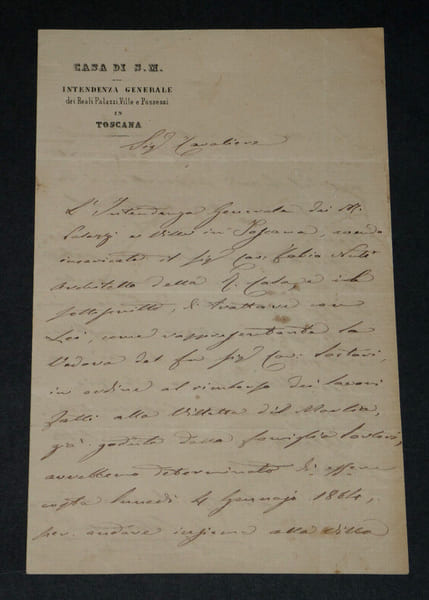 CASA DI S. M.
INTENDENZA GENERALE
dei Reali Palazzi, Ville e Possessi
IN
TOSCANA
Sigr Cavaliere
L'Intendenza Generale dei R.
Palazzi e Ville in Toscana, avendo
incaricato il Sigr Cav. Fabio Nuti
Architetto della R. Casa, e il
sottoscritto, di trattare con
Lei, come rappresentante la
Vedova del fu Sigr Cav.
in ordine al rimborso dei lavori
fatti alla Villetta del
già goduta dalla famiglia
avrebbero determinato di essere
costà lunedì 4 Gennajo 1864,
per andare insieme alla Villa